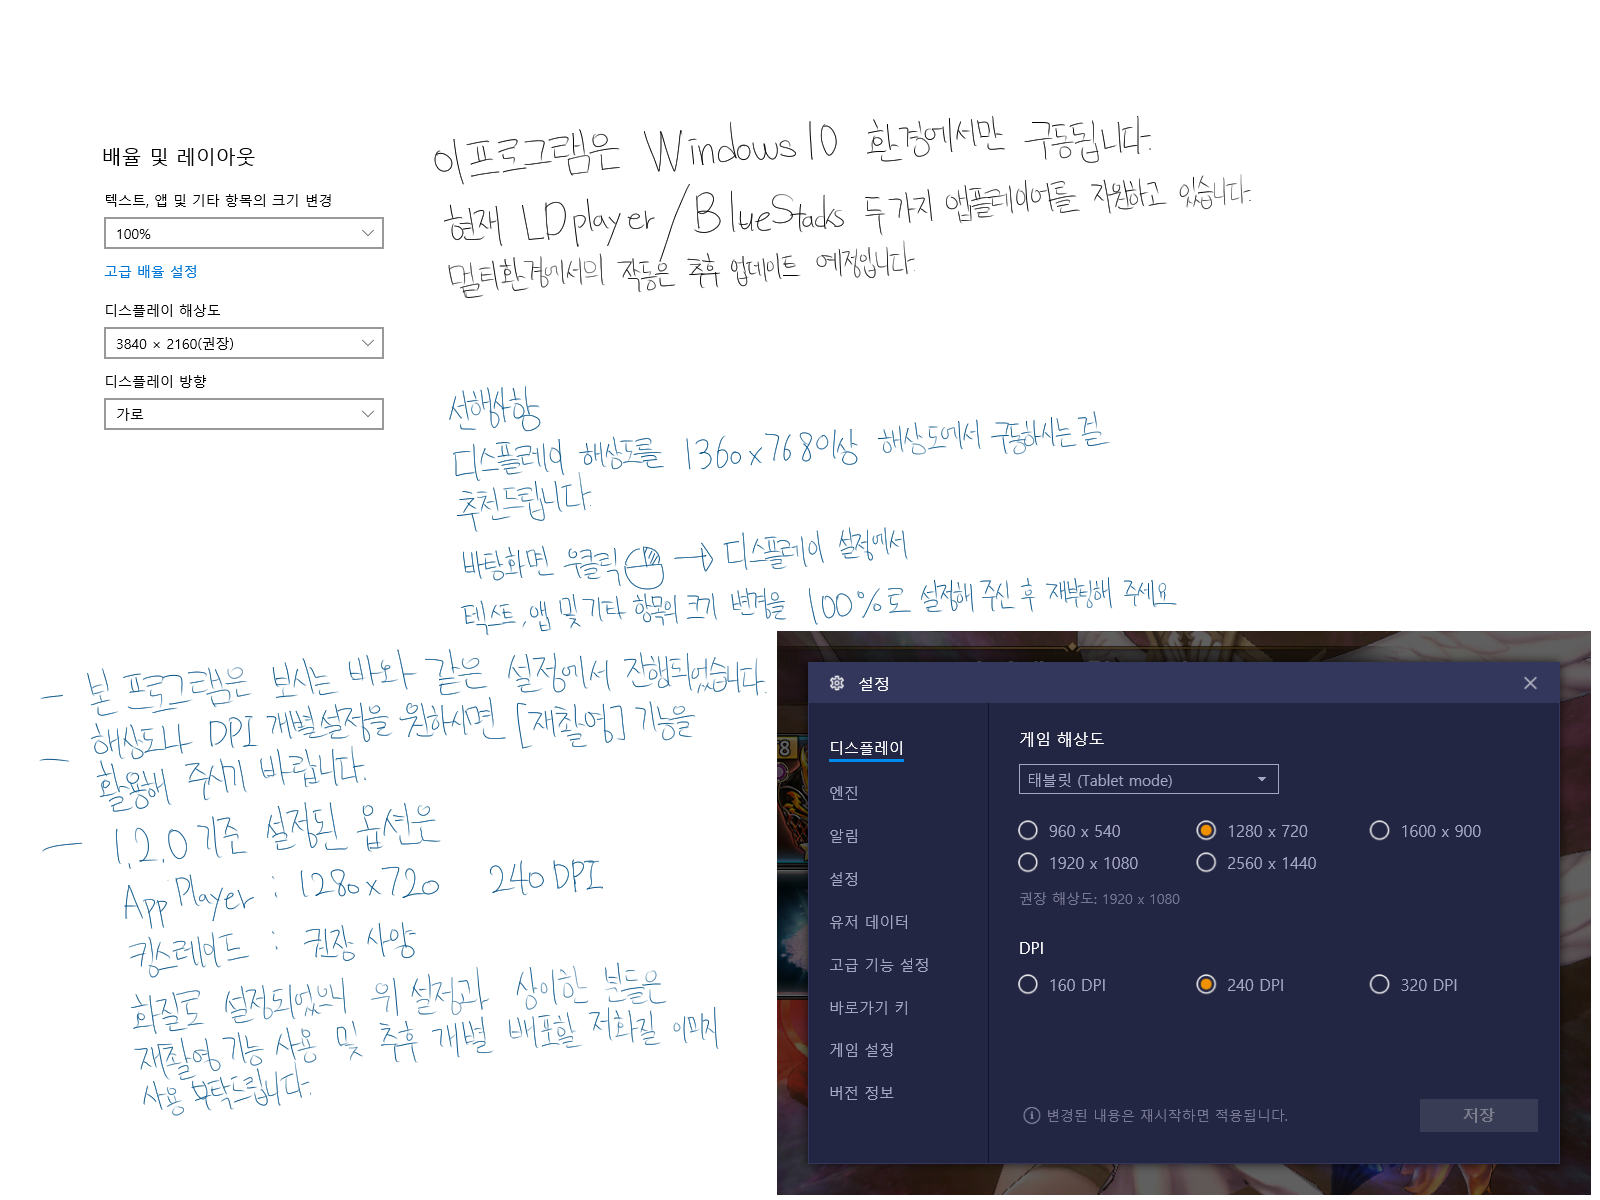 배율 및 레이아웃
텍스트, 앱 및 기타 항목의 크기 변경
100%
고급 배율 설정
디스플레이 해상도
3840 × 2160(권장)
디스플레이 방향
가로
이 프로그램은 Windows 10 환경에서만 구동됩니다.
현재 LDplayer / BlueStacks 두가지 앱플레이어를 지원하고 있습니다.
멀티환경에서의 작동은 추후 업데이트 예정입니다.
선행사항
디스플레이 해상도를 1360x768이상 해상도에서 구동하시는 걸
추천드립니다.
바탕화면 우클릭 → 디스플레이 설정에서
텍스트, 앱 및 기타 항목의 크기 변경을 100%로 설정해 주신 후 재부팅해 주세요
- 본 프로그램은 보시는 바와 같은 설정에서 진행되었습니다.
- 해상도나 DPI 개별설정을 원하시면 [재촬영] 기능을
활용해 주시기 바랍니다.
- 1.2.0 기준 설정된 옵션은
App Player : 1280x720 240 DPI
킹스레이드 : 권장 사양
화질로 설정되었으니 위 설정과 상이한 분들은
재촬영 기능 사용 및 추후 개별 배포할 저화질 이미지
사용 부탁드립니다.
설정
디스플레이
엔진
알림
설정
유저 데이터
고급 기능 설정
바로가기 키
게임 설정
버전 정보
게임 해상도
태블릿 (Tablet mode)
960 x 540 1280 x 720 1600 x 900
1920 x 1080 2560 x 1440
권장 해상도: 1920 x 1080
DPI
160 DPI 240 DPI 320 DPI
변경된 내용은 재시작하면 적용됩니다.
저장